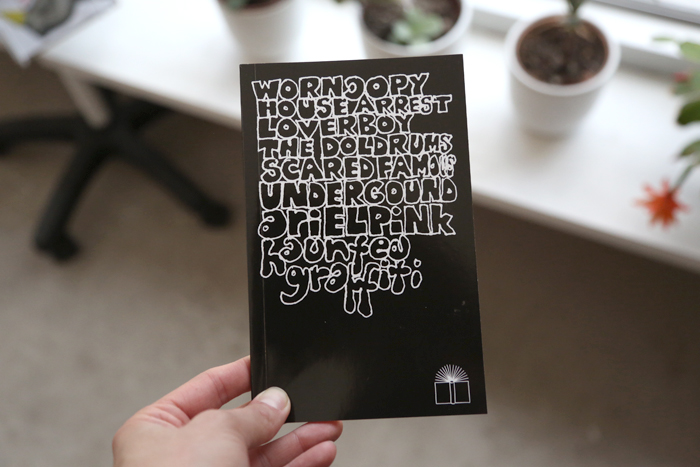 WORNCOPY
HOUSE ARREST
LOVERBOY
THE DOLDRUMS
SCARED FAMOUS
UNDERGOUND
ariELPiNk
haunted
graffiti